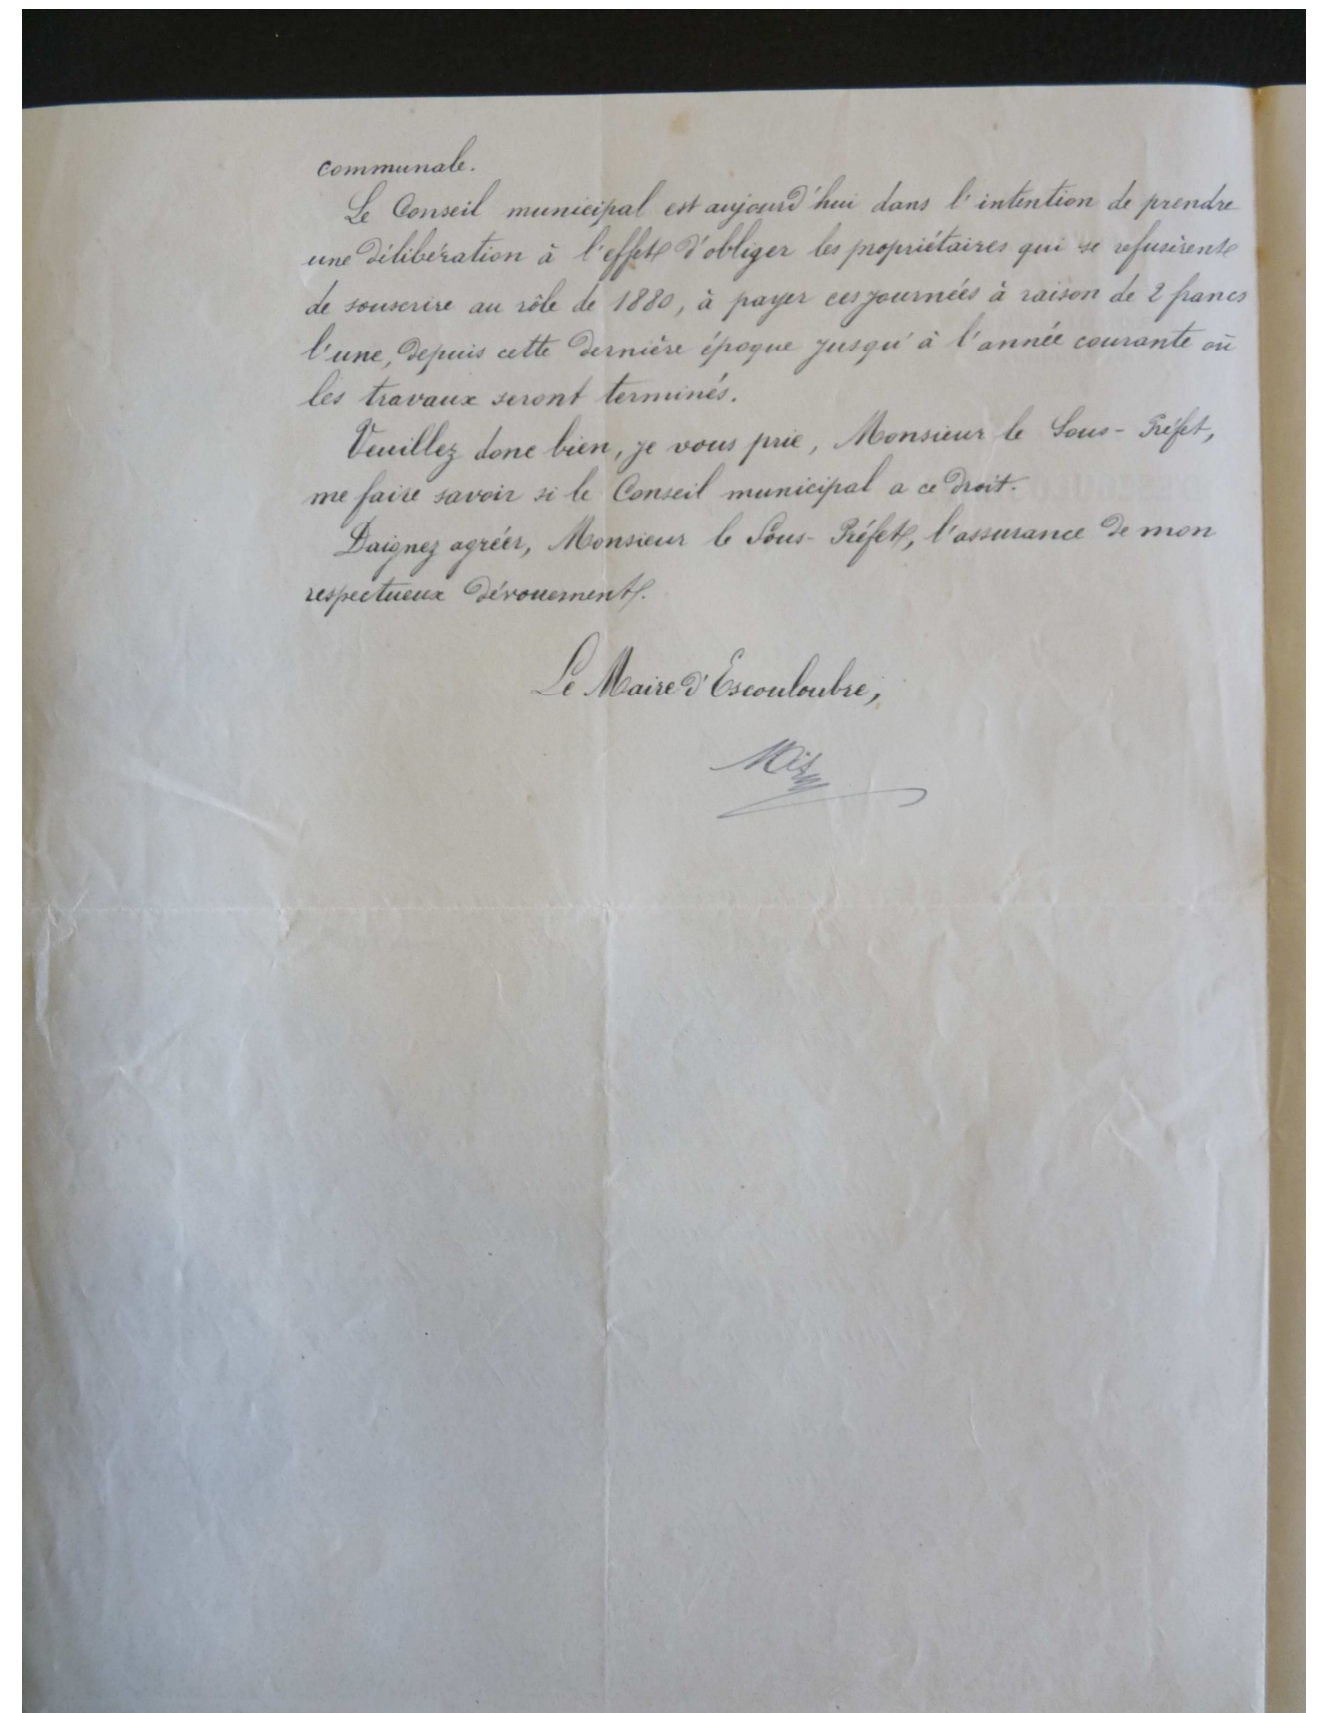 communale.
Le Conseil municipal est aujourd'hui dans l'intention de prendre
une délibération à l'effet d'obliger les propriétaires qui se refusèrent
de souscrire au rôle de 1880, à payer ces journées à raison de 2 francs
l'une, depuis cette dernière époque jusqu'à l'année courante où
les travaux seront terminés.
Veuillez donc bien, je vous prie, Monsieur le Sous-Préfet,
me faire savoir si le Conseil municipal a ce droit.
Daignez agréer, Monsieur le Sous-Préfet, l'assurance de mon
respectueux dévouement.
Le Maire d'Escouloubre,